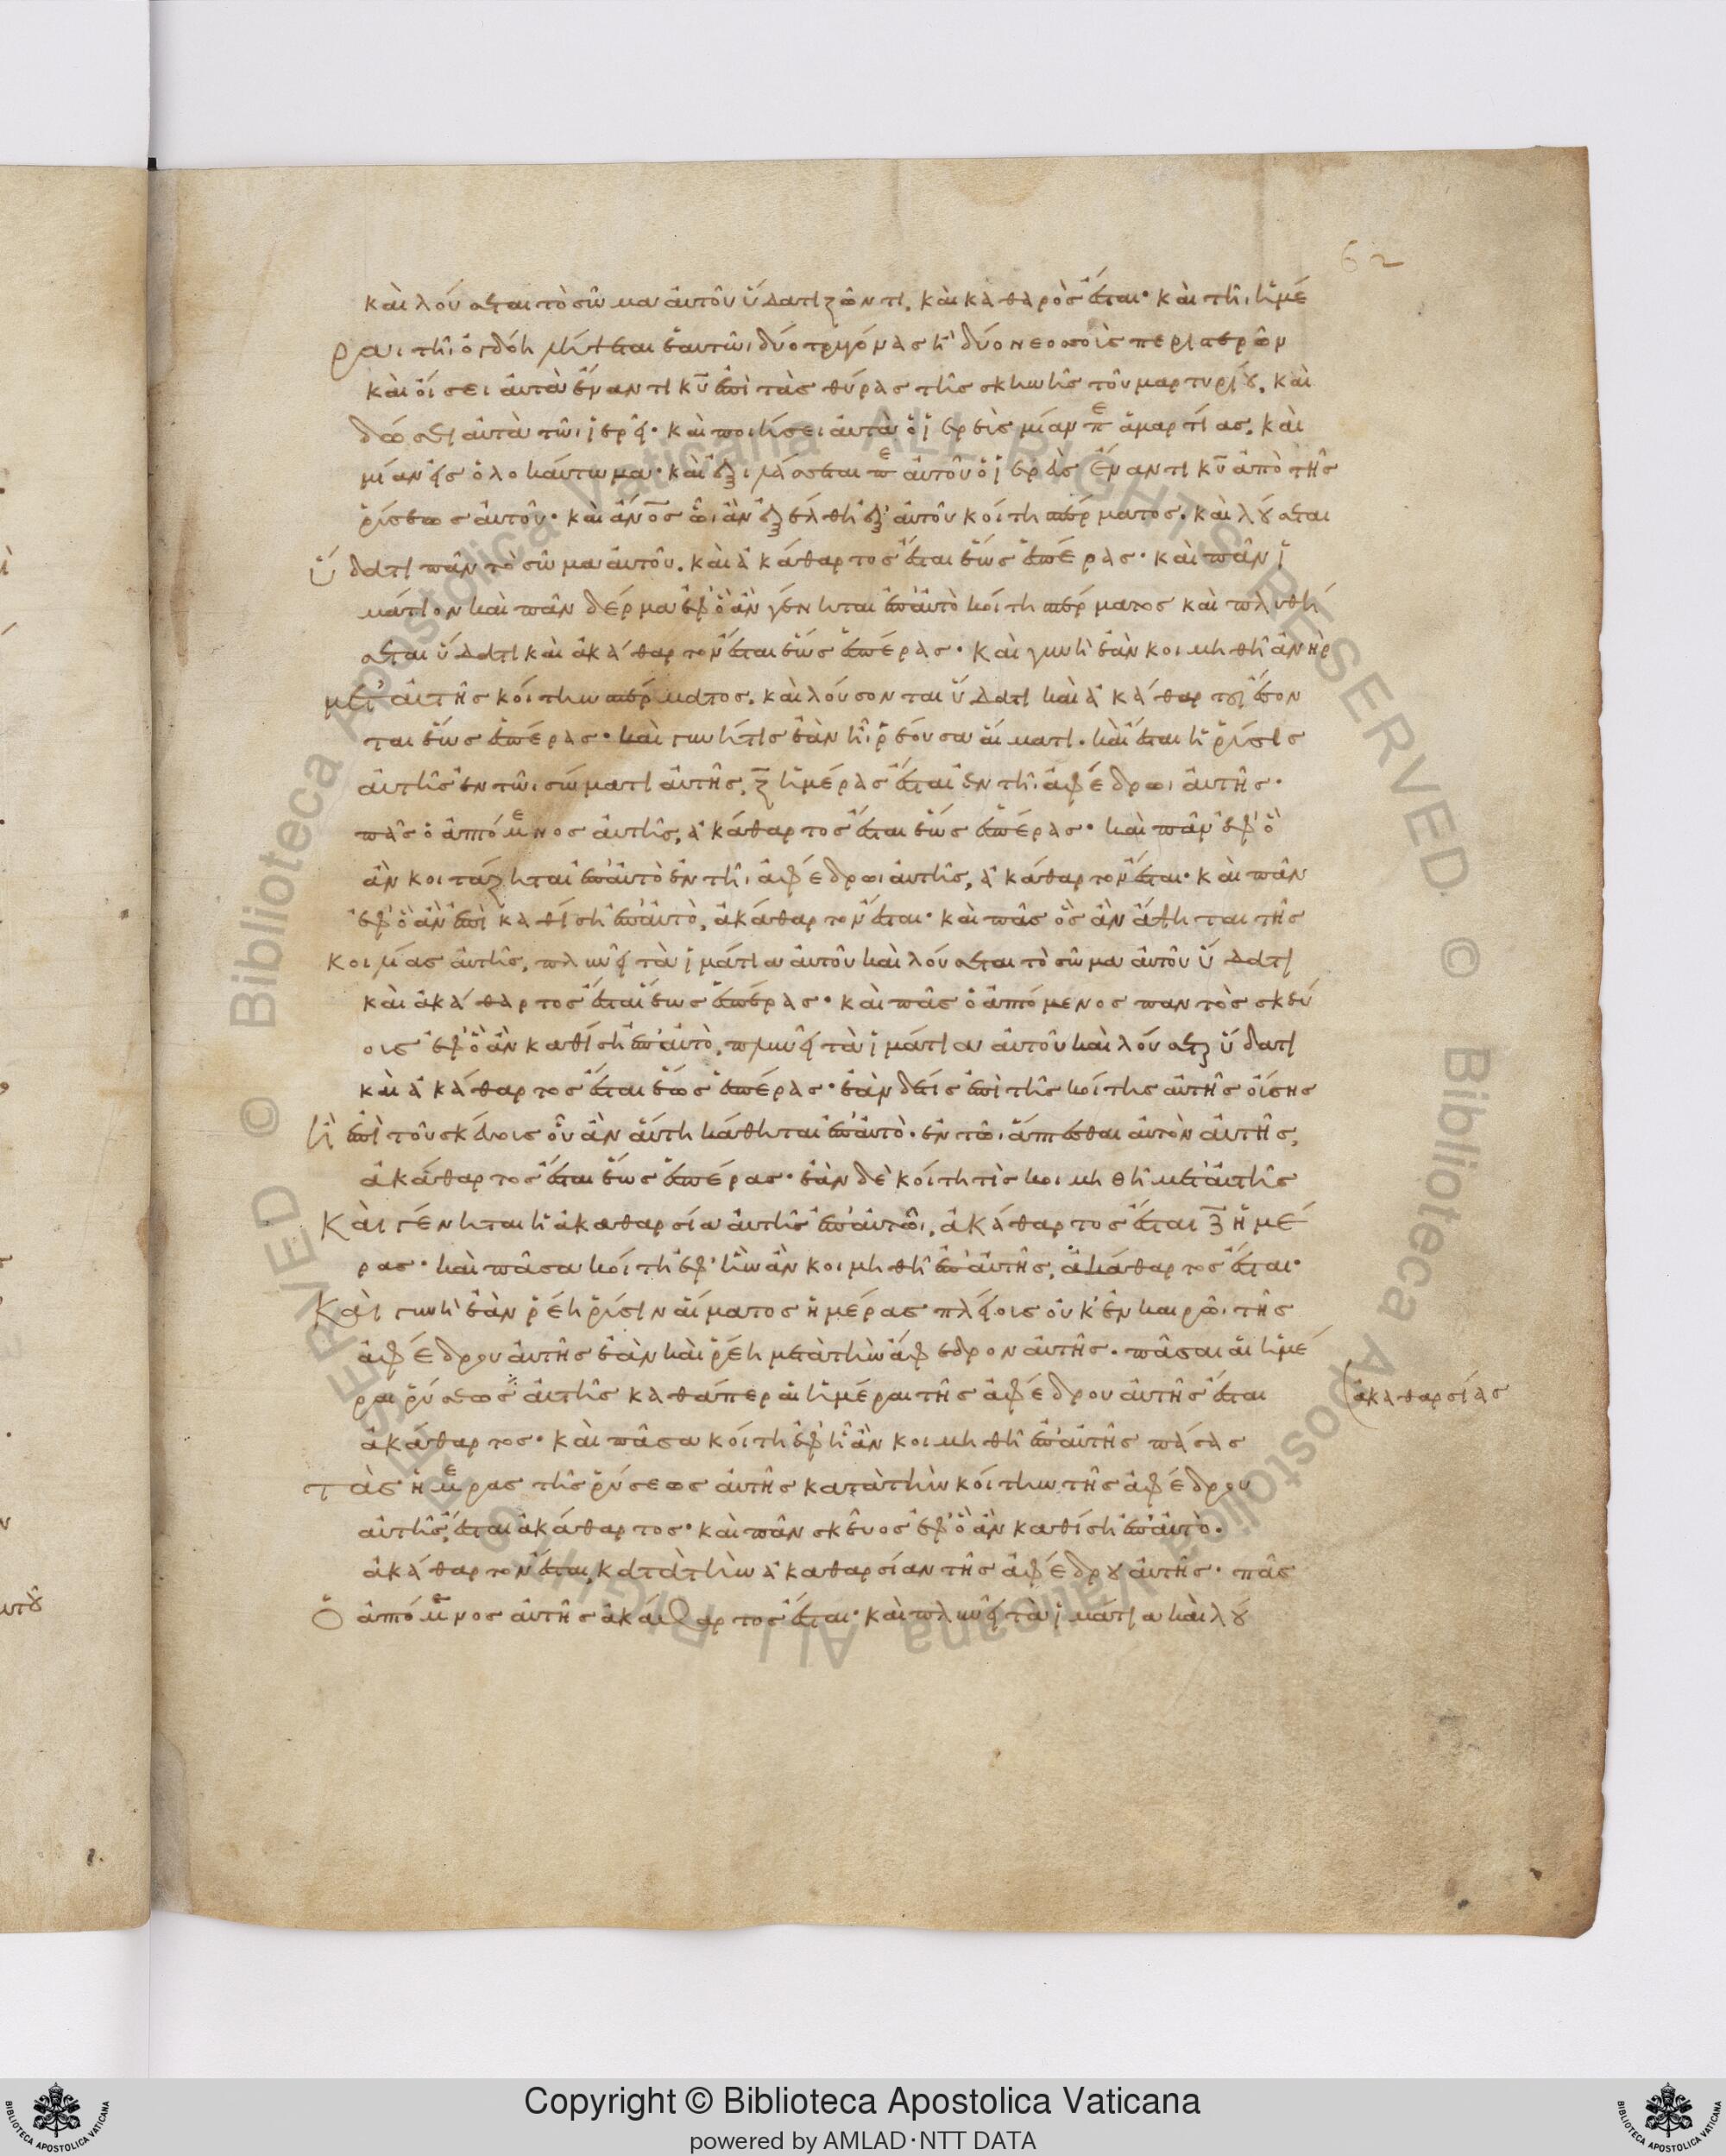 62
καὶ λούσεται τὸ σῶμα αὐτοῦ ὕδατι ζῶντι, καὶ καθαρὸς ἔσται· καὶ τῆι ἡμέ
ραι τῆι ὀγδόη λήψεται ἑαυτῶι δύο τρυγόνας ἢ δύο νεοσσοὺς περιστερῶν
καὶ οἴσει αὐτὰ ἔναντι κ̅υ̅ ἐπὶ τὰς θύρας τῆς σκηνῆς τοῦ μαρτυρίου, καὶ
δώσει αὐτὰ τῶι ἱερεῖ· καὶ ποιήσει αὐτὰ ὁ ἱερεὺς μίαν πε ἁμαρτίας, καὶ
μίαν εἰς ὁλοκαύτωμα· καὶ ἐξιλάσεται πε αὐτοῦ ὁ ἱερεὺς ἔναντι κ̅υ̅ ἀπὸ τῆς
ῥύσεως αὐτοῦ· καὶ ἄν̅ο̅ς ὧι ἂν ἐξέλθη ἐξ αὐτοῦ κοίτη σπέρματος. καὶ λούσεται
ὕδατι πᾶν τὸ σῶμα αὐτοῦ. καὶ ἀκάθαρτος ἔσται ἕως ἑσπέρας· καὶ πᾶν ἱ
μάτιον καὶ πᾶν δέρμα ἐφ' ὃ ἂν γένηται ἐπ' αὐτὸ κοίτη σπέρματος καὶ πλυθή
σεται ὕδατι καὶ ἀκάθαρτον ἔσται ἕως ἑσπέρας· καὶ γυνὴ ἐὰν κοιμηθῆ ἀνὴρ
μετ' αὐτῆς κοίτην σπέρματος. καὶ λούσονται ὕδατι καὶ ἀκάθαρτοι ἔσον
ται ἕως ἑσπέρας· καὶ γυνή τις ἐὰν ἦι ῥέουσα αἵματι. καὶ ἔσται ἡ ῥύσις
αὐτῆς ἐν τῶι σώματι αὐτῆς, ζ̅ ἡμέρας ἔσται ἐν τῆι ἀφέδρωι αὐτῆς·
πᾶς ὁ ἁπτόμενος αὐτῆς, ἀκάθαρτος ἔσται ἕως ἑσπέρας· καὶ πᾶν ἐφ' ὃ
ἂν κοιτάζηται ἐπ' αὐτὸ ἐν τῆι ἀφέδρωι αὐτῆς, ἀκάθαρτον ἔσται· καὶ πᾶν
ἐφ' ὃ ἂν ἐπὶ καθίση ἐπ' αὐτὸ, ἀκάθαρτον ἔσται· καὶ πᾶς ὃς ἂν ἅψηται τῆς
κοίτης αὐτῆς, πλυνεῖ τὰ ἱμάτια αὐτοῦ καὶ λούσεται τὸ σῶμα αὐτοῦ ὕδατι
καὶ ἀκάθαρτος ἔσται ἕως ἑσπέρας· καὶ πᾶς ὁ ἁπτόμενος παντὸς σκεύ
ους ἐφ' ὃ ἂν καθίση ἐπ' αὐτὸ, πλυνεῖ τὰ ἱμάτια αὐτοῦ καὶ λούσεται ὕδατι
καὶ ἀκάθαρτος ἔσται ἕως ἑσπέρας· ἐὰν δὲ ἐπὶ τῆς κοίτης αὐτῆς οὔσης
ἢ ἐπὶ τοῦ σκεύους οὗ ἂν αὕτη κάθηται ἐπ' αὐτὸ. ἐν τῶι ἅπτεσθαι αὐτὸν αὐτῆς,
ἀκάθαρτος ἔσται ἕως ἑσπέρας· ἐὰν δὲ κοίτη τὶς κοιμηθῆ μετ' αὐτῆς
καὶ γένηται ἡ ἀκαθαρσία αὐτῆς ἐπ' αὐτῶι, ἀκάθαρτος ἔσται ζ̅ ἡμέ
ρας· καὶ πᾶσα κοίτη ἐφ' ἣν ἂν κοιμηθῆ ἐπ' αὐτῆς, ἀκάθαρτος ἔσται·
Καὶ γυνὴ ἐὰν ῥέη ῥύσιν αἵματος ἡμέρας πλείους οὐκ ἐν καιρῶι τῆς
ἀφέδρου αὐτῆς ἐὰν καὶ ῥέη μετὰ τὴν ἄφεδρον αὐτῆς. πᾶσαι αἱ ἡμέ
ραι ῥύσεως αὐτῆς καθάπερ αἱ ἡμέραι τῆς ἀφέδρου αὐτῆς ἔσται
ἀκαθαρσίας
ἀκάθαρτος· καὶ πᾶσα κοίτη ἐφ' ἣ ἂν κοιμηθῆ ἐπ' αὐτῆς πάσας
τὰς ἡμέρας τῆς ῥύσεως αὐτῆς κατὰ τὴν κοίτην τῆς ἀφέδρου
αὐτῆς, ἔσται ἀκάθαρτος· καὶ πᾶν σκεῦος ἐφ' ὃ ἂν καθίση ἐπ' αὐτὸ.
ἀκάθαρτον ἔσται, κατὰ τὴν ἀκαθαρσίαν τῆς ἀφέδρου αὐτῆς· πᾶς
ὁ ἁπτόμενος αὐτῆς ἀκάθαρτος ἔσται· καὶ πλυνεῖ τὰ ἱμάτια καὶ λού
Copyright © Biblioteca Apostolica Vaticana
powered by AMLAD·NTT DATA